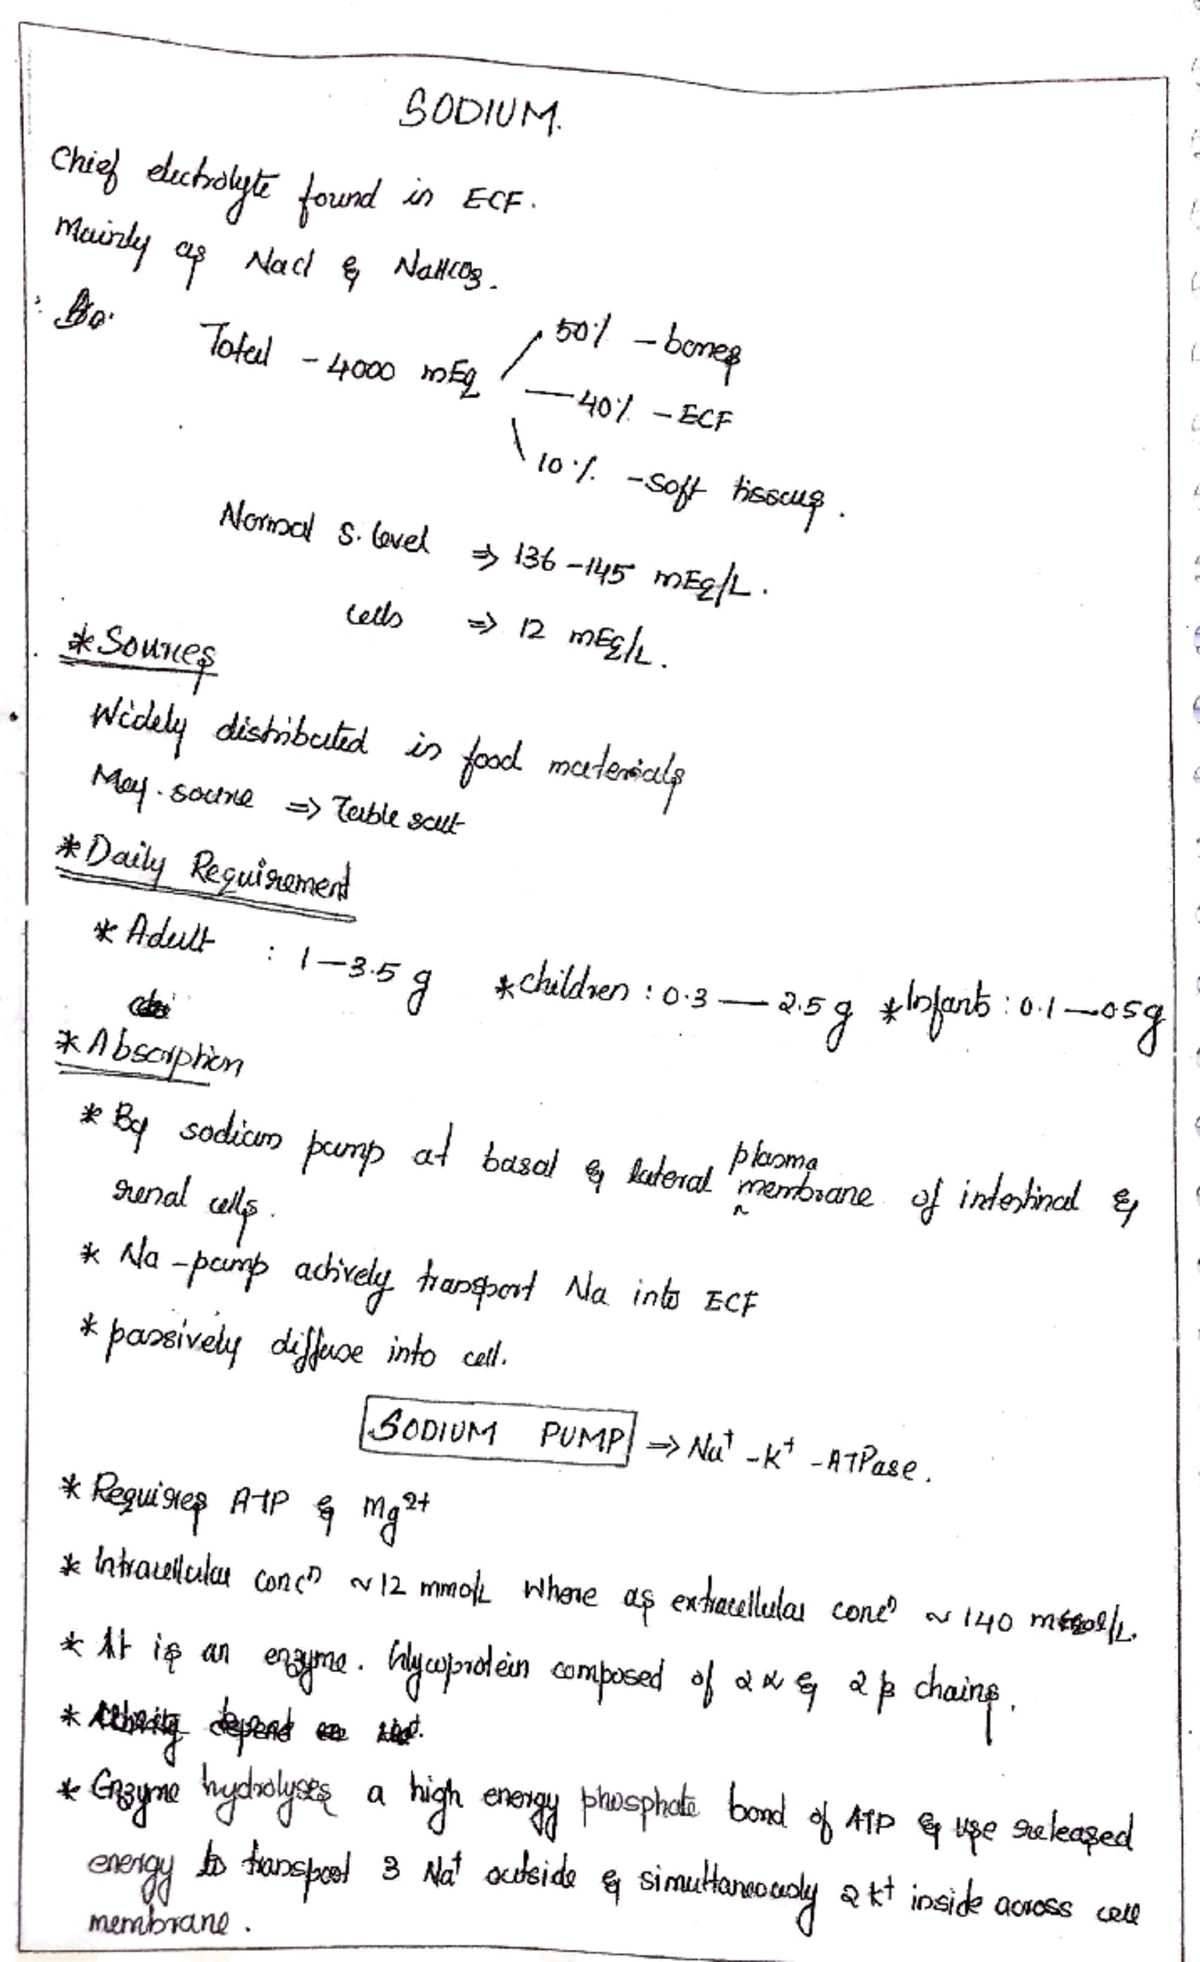 SODIUM.
Chief electrolyte found in ECF.
Mainly as NaCl & NaHCO3.
Total - 4000 mEq
50% - bones
40% - ECF
10% - soft tissues.
Normal S. level ⇒ 136-145 mEq/L.
cells ⇒ 12 mEq/L.
* Sources
Widely distributed in food materials
May. source ⇒ Table salt
* Daily Requirement
* Adult : 1-3.5 g * children : 0.3 — 2.5 g * Infants : 0.1 — 0.5 g
* Absorption
* By sodium pump at basal & lateral plasma membrane of intestinal &
renal cells.
* Na-pump actively transport Na into ECF
* passively diffuse into cell.
SODIUM PUMP ⇒ Na⁺-K⁺-ATPase.
* Requires ATP & Mg²⁺
* Intracellular concⁿ ~12 mmol/L where as extracellular concⁿ ~ 140 mmol/L.
* It is an enzyme. Glycoprotein composed of 2α & 2β chains.
* Activity depend on
* Enzyme hydrolyses a high energy phosphate bond of ATP & use released
energy to transport 3 Na⁺ outside & simultaneously 2K⁺ inside across cell
membrane.